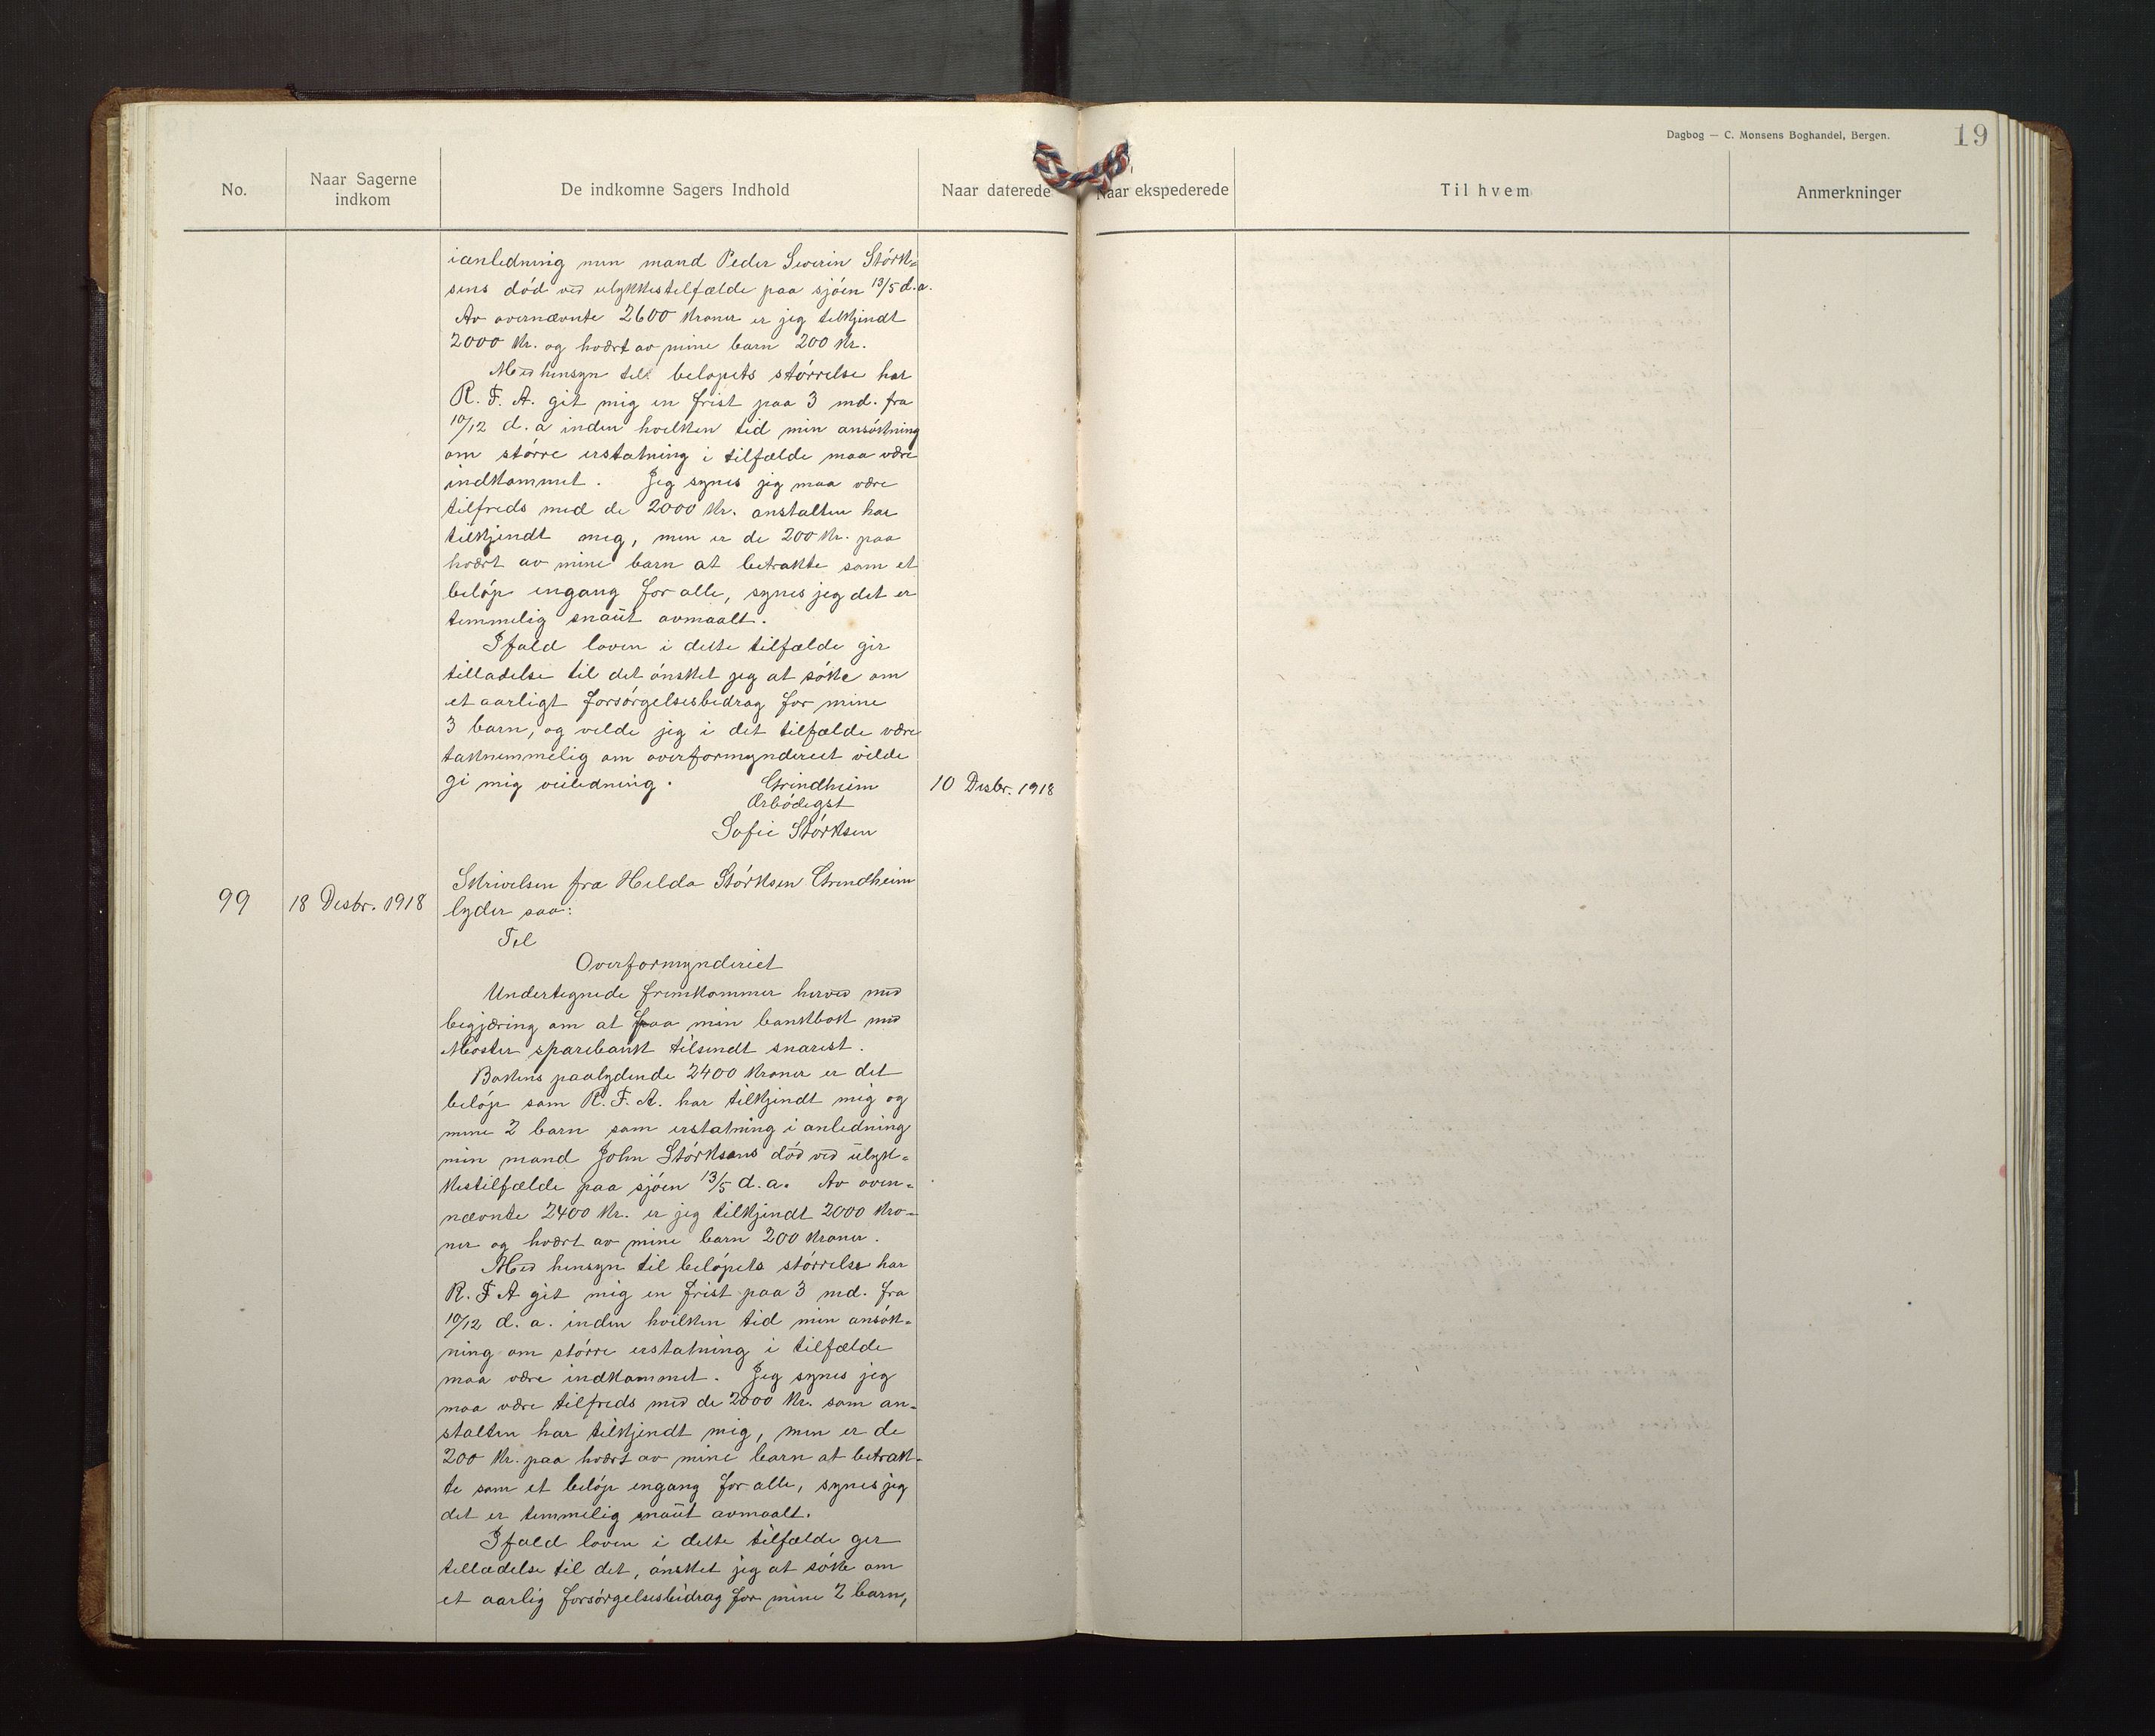 Dagbog — C. Monsens Boghandel, Bergen.
19
No.
Naar Sagerne
indkom
De indkomne Sagers Indhold
Naar daterede
Naar ekspederede
Til hvem
Anmerkninger
i anledning min mand Peder Severin Störk=
sens död ved ulykkestilfælde paa sjöen 13/5 d.a.
Av overnævnte 2600 kroner er jeg tilkjendt
2000 kr. og hvært av mine barn 200 kr.
Med hensyn til belopets störrelse har
R. F. A. git mig en frist paa 3 md. fra
10/12 d. a inden hvilken tid min ansökning
om större erstatning i tilfælde maa være
indkommet. Jeg synes jeg maa være
tilfreds med de 2000 kr. anstalten har
tilkjendt mig, men er de 200 kr. paa
hvært av mine barn at betrakte som et
belöp engang for alle, synes jeg det er
temmelig snaut avmaalt.
Ifald loven i dette tilfælde gir
tilladelse til det önsket jeg at söke om
et aarligt forsörgelsesbidrag for mine
3 barn, og vilde jeg i det tilfælde være
taknemmelig om overformynderiet vilde
gi mig veiledning. Grindheim
10 Desbr. 1918
Ærbödigst
Sofie Störksen
99
18 Desbr. 1918
Skrivelsen fra Hilda Störksen Grindheim
lyder saa:
Til
Overformynderiet
Undertegnede fremkommer herved med
begjæring om at faa min bankbok med
Moster sparebank tilsendt snarest.
Bokens paalydende 2400 kroner er det
belöp som R. F. A. har tilkjendt mig og
mine 2 barn som erstatning i anledning
min mand John Störksens död ved ulyk=
kestilfælde paa sjöen 13/5 d. a. Av oven=
nævnte 2400 kr. er jeg tilkjendt 2000 kro=
ner og hvært av mine barn 200 kroner.
Med hensyn til belöpets störrelse har
R. F A git mig en frist paa 3 md. fra
10/12 d. a. inden hvilken tid min ansök=
ning om större erstatning i tilfælde
maa være indkommet. Jeg synes jeg
maa være tilfreds med de 2000 kr. som an=
stalten har tilkjendt mig, men er de
200 kr. paa hvært av mine barn at betrak=
te som et belöp engang for alle, synes jeg
det er temmelig snaut avmaalt.
Ifald loven i dette tilfælde gir
tilladelse til det, önsket jeg at söke om
et aarlig forsörgelsesbidrag for mine 2 barn,